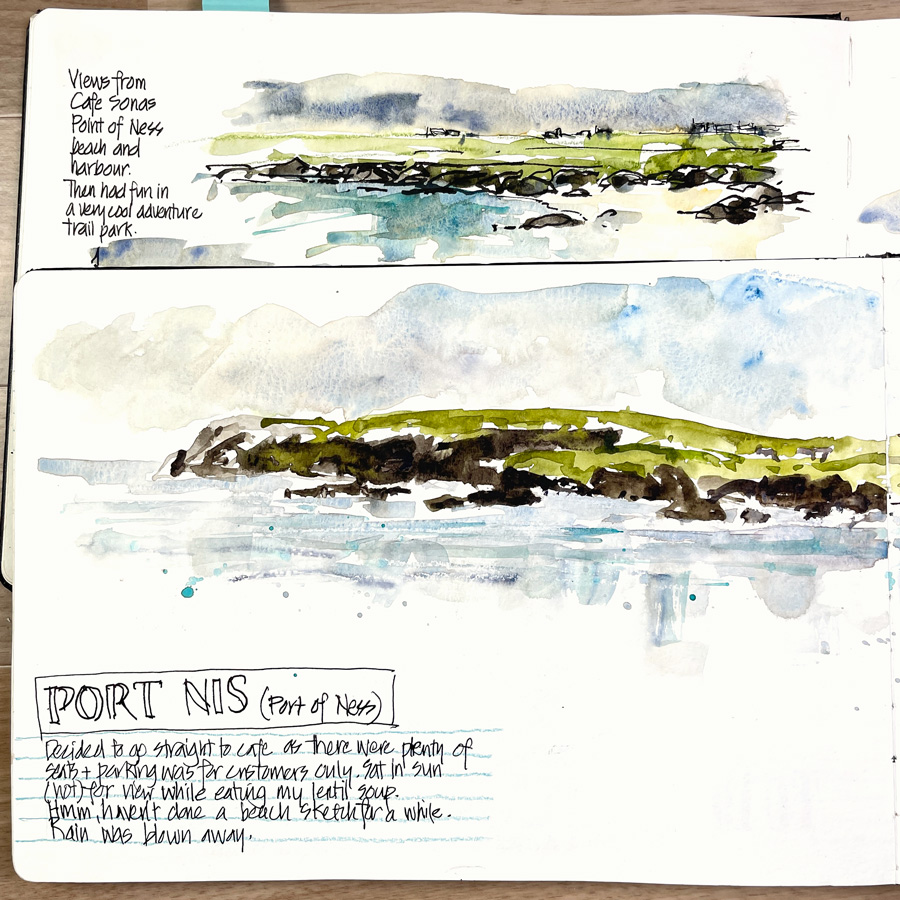 Views from
Cafe Sonas
Point of Ness
beach and
harbour.
Then had fun in
a very cool adventure
trail park.
PORT NIS (Port of Ness)
Decided to go straight to cafe as there were plenty of
seats + parking was for customers only. Sat in sun
(hot) for view while eating my lentil soup.
Hmm, haven't done a beach sketch for a while.
Rain was blown away.